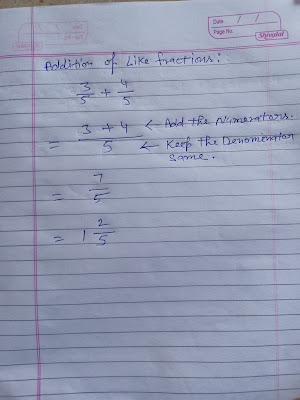 Date / /
Page No.
Shivalal
Addition of Like fractions:
3/5 + 4/5
= 3 + 4 / 5 ← Add the Numerators.
← Keep the Denominator
same.
= 7/5
= 1 2/5